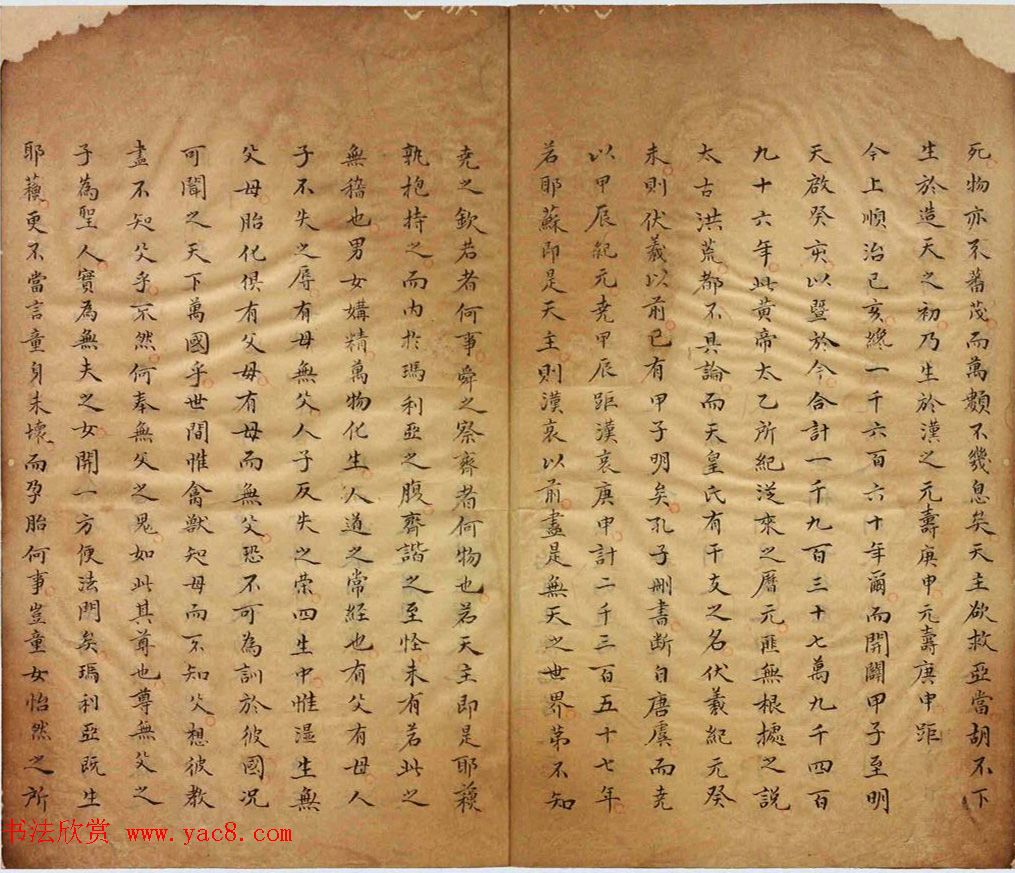 死物亦不蕃茂而萬類不幾息矣天主欲救亞當胡不下
生於造天之初乃生於漢之元壽庚申元壽庚申距
今上順治己亥纔一千六百六十年爾而開闢甲子至明
天啟癸亥以暨於今合計一千九百三十七萬九千四百
九十六年此黃帝太乙所紀從來之曆元匪無根㯫之說
太古洪荒都不具論而天皇氏有干支之名伏羲紀元癸
未則伏羲以前已有甲子明矣孔子刪書斷自唐虞而堯
以甲辰紀元堯甲辰距漢哀庚申計二千三百五十七年
若耶蘇即是天主則漢哀以前盡是無天之世界第不知
堯之欽若者何事舜之察齊者何物也若天主即是耶穌
孰抱持之而內於瑪利亞之腹齊諧之至怪未有若此之
無稽也男女媾精萬物化生人道之常經也有父有母人
子不失之辱有母無父人子反失之榮四生中惟濕生無
父母胎化俱有父母有母而無父恐不可為訓於彼國況
可聞之天下萬國乎世間惟禽獸知母而不知父想彼教
盡不知父乎不然何奉無父之鬼如此其尊也尊無父之
子為聖人實為無夫之女開一方便法門矣瑪利亞既生
耶穌更不當言童身未壞而孕胎何事豈童女怡然之所
书法欣赏 www.yac8.com